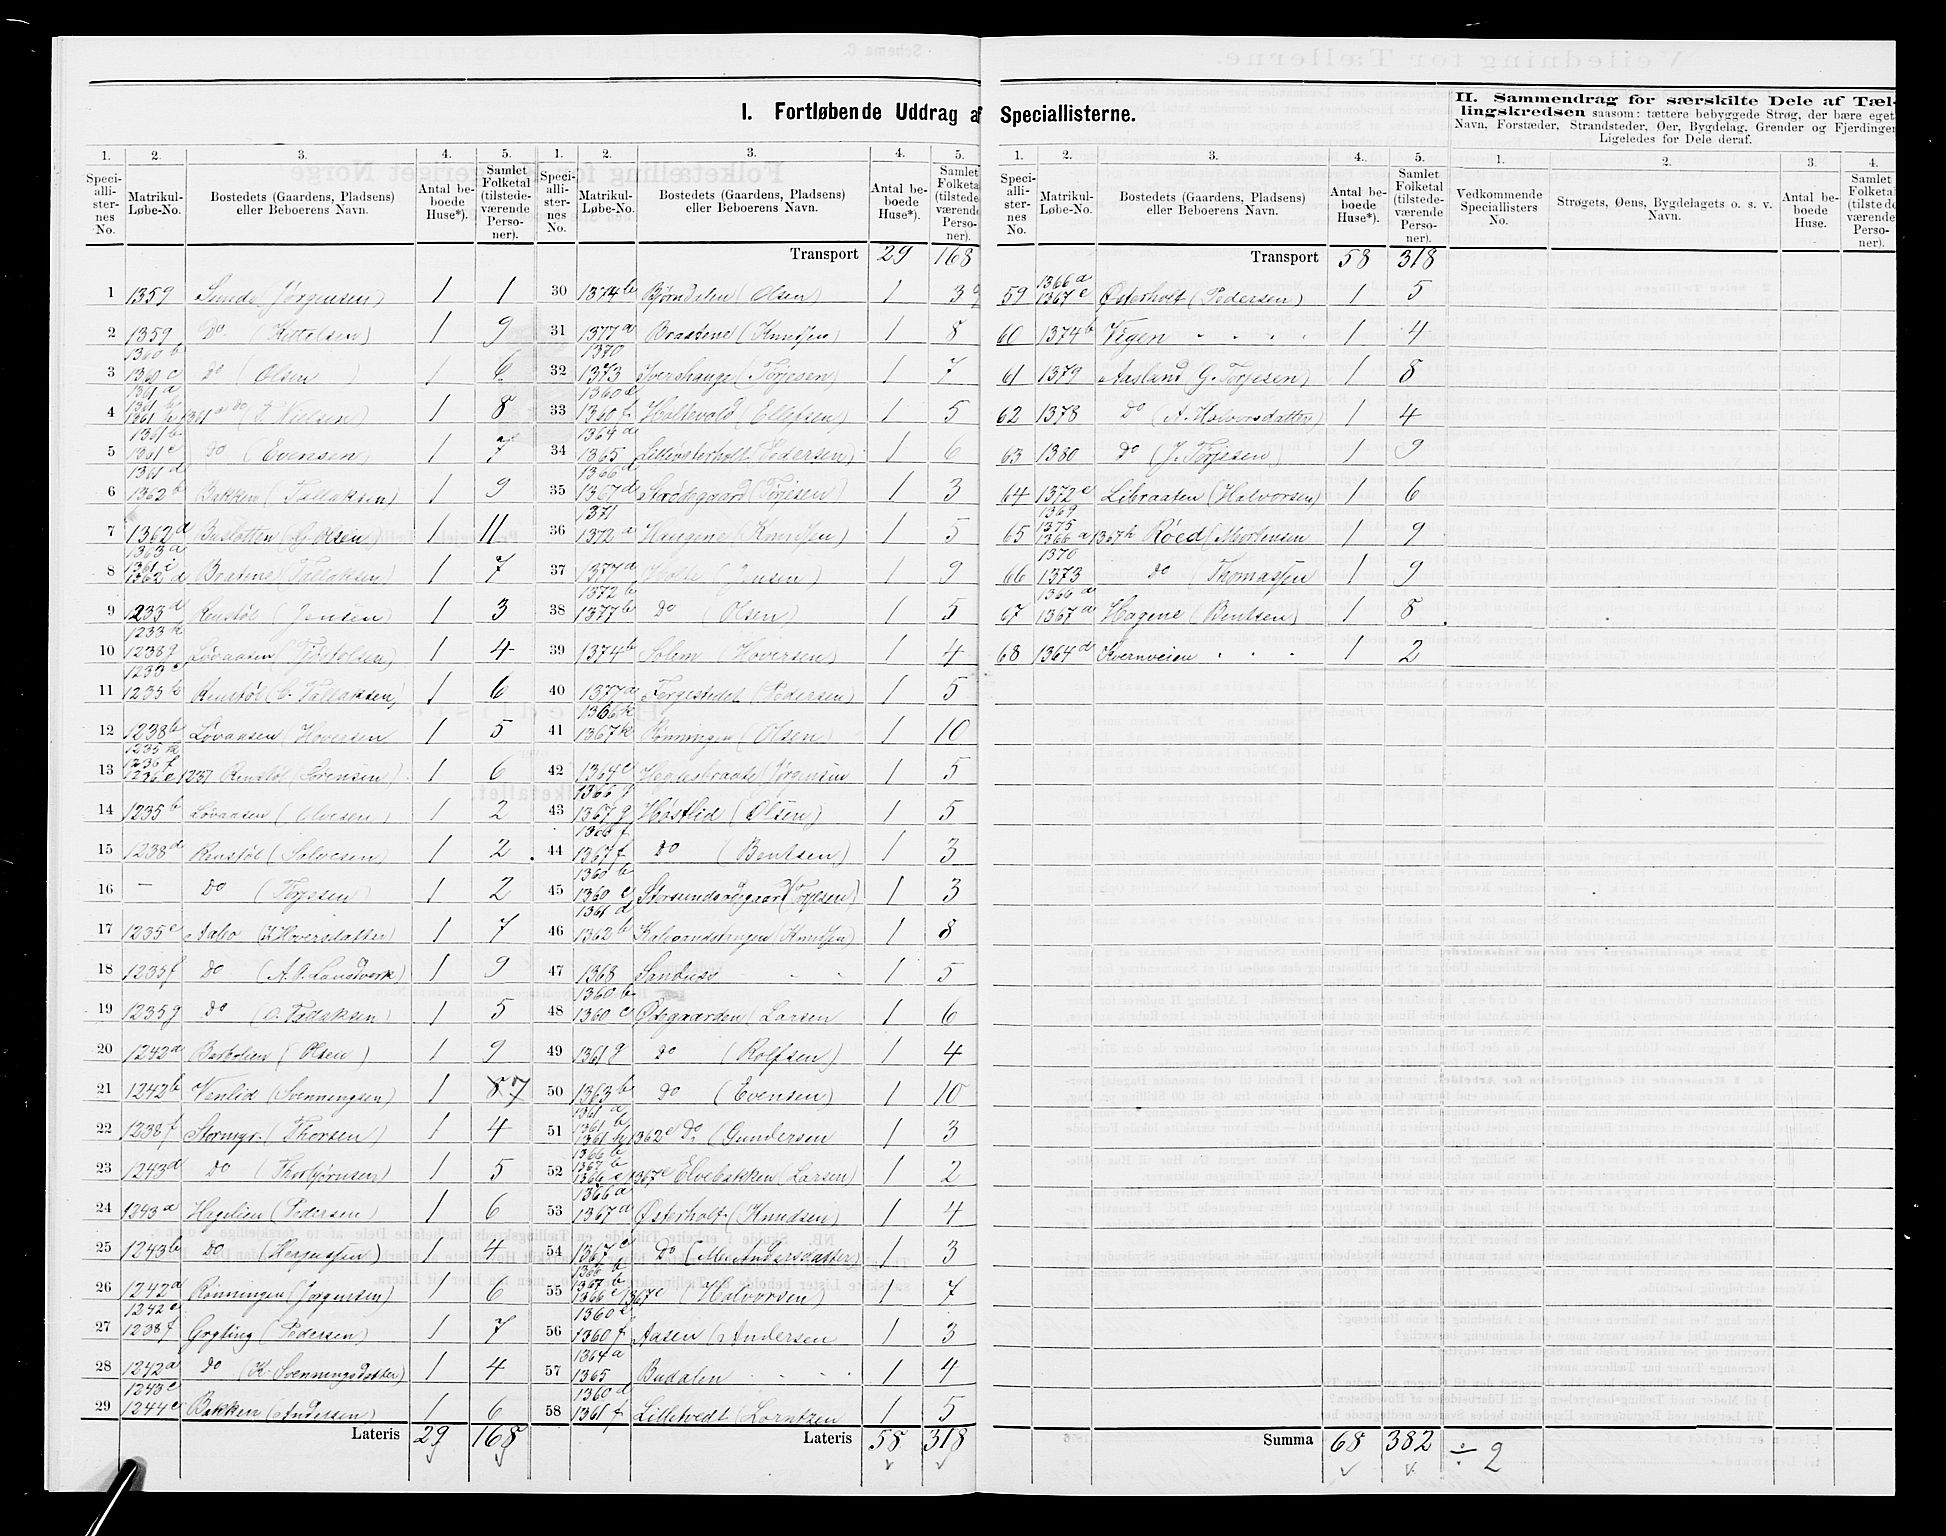 I. Fortløbende Uddrag af Speciallisterne.
II. Sammendrag for særskilte Dele af Tæl-
lingskredsen saasom: tættere bebyggede Strøg, der bære eget
Navn, Forstæder, Strandsteder, Øer, Bygdelag, Grender og Fjerdinger
Ligeledes for Dele deraf.
1. 2. 3. 4. 5.
Speci-alli-ster-nes No. Matrikul-Løbe-No. Bostedets (Gaardens, Pladsens) eller Beboerens Navn. Antal be-boede Huse*). Samlet Folketal (tilstede-værende Perso-ner).
1 1359 Sunde (Jørgensen) 1 1
2 1359 Do (Kittelsen) 1 9
3 1360 b 1360 c do (Olsen) 1 6
4 1361 a do (Nielsen) 1 8
5 1361 b 1361 c do (Evensen) 1 7
6 1361 d 1362 b Bakken (Tallaksen) 1 9
7 1362 d (G. Olsen) 1 11
8 1363 a 1361 i 1362 a Braatene (Tallaksen) 1 7
9 1233 d Renstøl (Jensen) 1 3
10 1233 k 1238 g Løvaasen 1 4
11 1235 h Renstøl (Tallaksen) 1 6
12 1238 b Løvaasen (Hoversen 1 5
13 1236 f 1236 a 1237 Renstøl (Sørensen) 1 6
14 1235 b Løvaasen 1 2
15 1238 d Renstøl (Solvesen) 1 2
16 – Do (Terjesen) 1 2
17 1235 e Aabo (Hoversdatter) 1 7
18 1235 f Do (A. O. Landverk) 1 9
19 1235 g Do (O. Tallaksen) 1 5
20 1242 a (Olsen) 1 9
21 1242 b Venlid (Svenningsen) 1 8 7
22 1238 f Stormyr. (Thorsen) 1 4
23 1243 d Do (Thorbjørnsen) 1 5
24 1243 a Hagelien (Pedersen) 1 6
25 1243 b Do 1 4
26 1242 d Rønningen (Jørgensen) 1 6
27 1242 c 1238 f Gryting (Pedersen) 1 7
28 1242 a Do (K. Svenningsdatter) 1 4
29 1243 c 1244 c Bakken (Andersen) 1 6
Lateris 29 168
1. 2. 3. 4. 5.
Speci-alli-ster-nes No. Matrikul-Løbe-No. Bostedets (Gaardens, Pladsens) eller Beboerens Navn. Antal be-boede Huse*). Samlet Folketal (tilstede-værende Perso-ner).
Transport 29 168
30 1374 b Bjørndalen (Olsen) 1 3
31 1377 a Braatene (Knudsen) 1 8
32 1370 1373 Ivershauge (Terjesen) 1 7
33 Holtevold (Ellefsen) 1 5
34 1364 a 1365 Lilleøsterholt Pedersen) 1 6
35 1366 d 1367 d (Terjesen 1 3
36 1371 1372 a Haugene (Knudsen) 1 5
37 1377 d (Jensen) 1 9
38 1372 b 1377 b Do (Olsen) 1 5
39 1374 b Solem (Hoversen) 1 4
40 1377 a Tergestedet (Pedersen) 1 5
41 1366 k 1367 k Rønningen (Olsen) 1 10
42 1364 c (Jørgensen 1 5
43 1366 g 1367 g Høstlid (Olsen) 1 5
44 1366 f 1367 f Do (Bentsen) 1 3
45 1360 b 1360 c (Terjesen) 1 3
46 1361 d 1362 b Kalvandstangen (Knudsen) 1 8
47 1368 Sandnæs 1 5
48 1360 b 1360 c Ødegaarden (Larsen 1 6
49 1361 g Do (Rolfsen) 1 4
50 1363 b Do (Evensen) 1 10
51 1361 a 1361 h 1362 c Do (Gundersen 1 3
52 1366 b 1367 b 1366 c 1367 c Elvebakken (Larsen) 1 2
53 1366 a 1367 d Østerholt (Knudsen) 1 4
54 1367 c Do (M. Andersdatter) 1 3
55 1366 b 1367 b 1366 c 1367 c (Halvorsen) 1 7
56 1360 e 1360 f Aasen (Andersen 1 3
57 1364 a 1365 Budalen 1 4
58 1360 d 1361 f Lilletvedt (Lorntzen 1 5
Lateris 58 318
1. 2. 3. 4. 5.
Speci-alli-ster-nes No. Matrikul-Løbe-No. Bostedets (Gaardens, Pladsens) eller Beboerens Navn. Antal be-boede Huse*). Samlet Folketal (tilstede-værende Perso-ner).
Transport 58 318
59 1366 a 1367 c Østerholt (Pedersen) 1 5
60 1374 b Vegen 1 4
61 1379 Aasland (G. Terjesen) 1 8
62 1378 Do (A. Halvorsdatter) 1 4
63 1380 Do (J. Terjesen) 1 9
64 1372 c Libraaten (Halvorsen) 1 6
65 1369 1375 1366 a 1367 h Røed (Mortensen 1 9
66 1370 1373 Do (Thomassen 1 9
67 1366 a 1367 a Hagene (Bentsen) 1 8
68 1364 d Kvernveien 1 2
Summa 68 382 ÷ 2
1. 2. 3. 4.
Vedkommende Speciallisters No. Strøgets, Øens, Bygdelagets o. s. v. Navn. Antal be-boede Huse. Samlet Folketal (tilstede-værende Perso-ner).